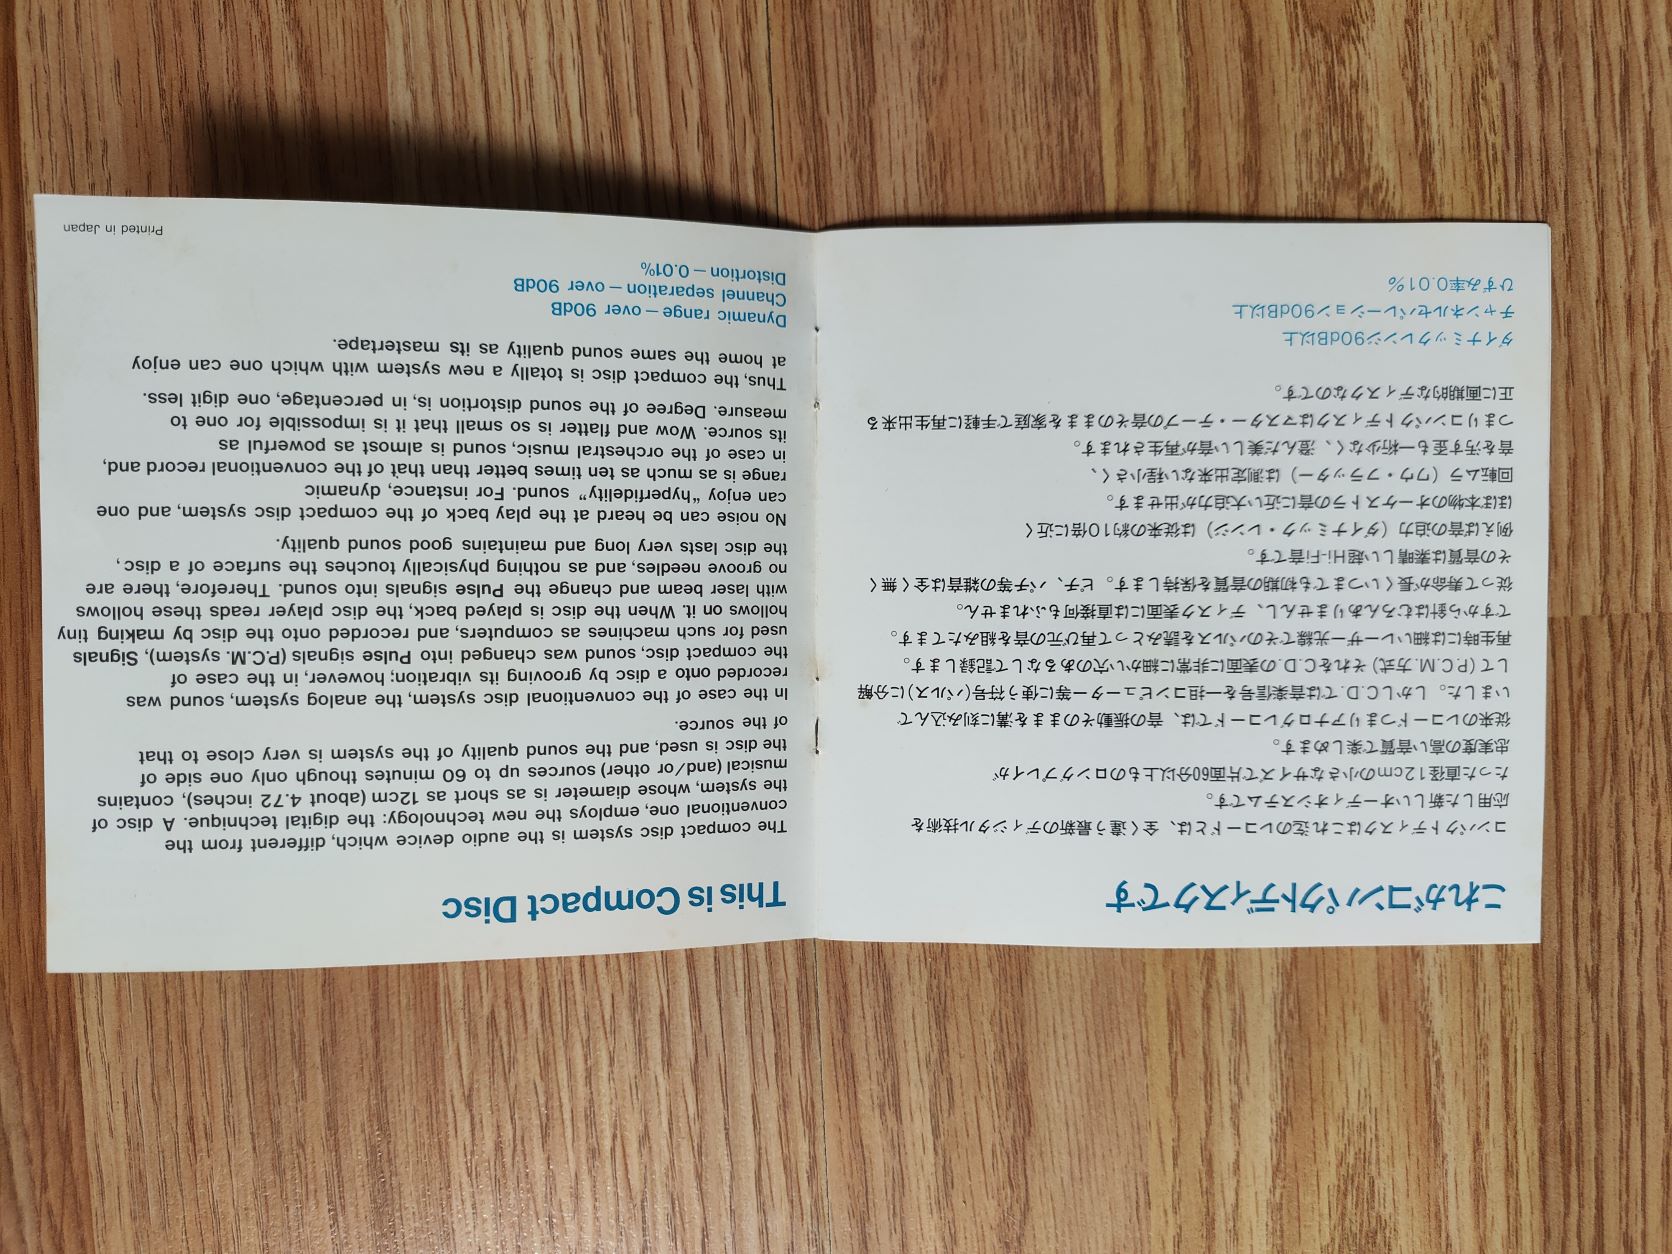 これがコンパクトディスクです
コンパクトディスクはこれ迄のレコードとは、全く違う最新のディジタル技術を
応用した新しいオーディオシステムです。
たった直径12cmの小さなサイズで片面60分以上ものロングプレイが
忠実度の高い音質で楽しめます。
従来のレコードつまりアナログレコードでは、音の振動そのままを溝に刻み込んで
いました。しかしC.D.では音楽信号を一担コンピューター等に使う符号(パルス)に分解
して(P.C.M.方式)それをC.D.の表面に非常に細かい穴のあるなしで記録します。
再生時には細いレーザー光線でそのパルスを読みとって再び元の音を組みたてます。
ですから針はむろんありませんし、ディスク表面には直接何もふれません。
従って寿命が長くいつまでも初期の音質を保持します。ピチ、パチ等の雑音は全く無く
その音質は素晴しい超Hi-Fi音です。
例えば音の迫力(ダイナミック・レンジ)は従来の約10倍に近く
ほぼ本物のオーケストラの音に近い大迫力が出せます。
回転ムラ(ワウ・フラッター)は測定出来ない程小さく、
音を汚す歪も一桁少なく、澄んだ美しい音が再生されます。
つまりコンパクトディスクはマスター・テープの音そのままを家庭で手軽に再生出来る
正に画期的なディスクなのです。
ダイナミックレンジ90dB以上
チャンネルセパレーション90dB以上
ひずみ率0.01%
This is Compact Disc
The compact disc system is the audio device which, different from the
conventional one, employs the new technology: the digital technique. A disc of
the system, whose diameter is as short as 12cm (about 4.72 inches), contains
musical (and/or other) sources up to 60 minutes though only one side of
the disc is used, and the sound quality of the system is very close to that
of the source.
In the case of the conventional disc system, the analog system, sound was
recorded onto a disc by grooving its vibration; however, in the case of
the compact disc, sound was changed into Pulse signals (P.C.M. system), Signals
used for such machines as computers, and recorded onto the disc by making tiny
hollows on it. When the disc is played back, the disc player reads these hollows
with laser beam and change the Pulse signals into sound. Therefore, there are
no groove needles, and as nothing physically touches the surface of a disc,
the disc lasts very long and maintains good sound quality.
No noise can be heard at the play back of the compact disc system, and one
can enjoy "hyperfidelity" sound. For instance, dynamic
range is as much as ten times better than that of the conventional record and,
in case of the orchestral music, sound is almost as powerful as
its source. Wow and flatter is so small that it is impossible for one to
measure. Degree of the sound distortion is, in percentage, one digit less.
Thus, the compact disc is totally a new system with which one can enjoy
at home the same sound quality as its mastertape.
Dynamic range — over 90dB
Channel separation — over 90dB
Distortion — 0.01%
Printed in Japan